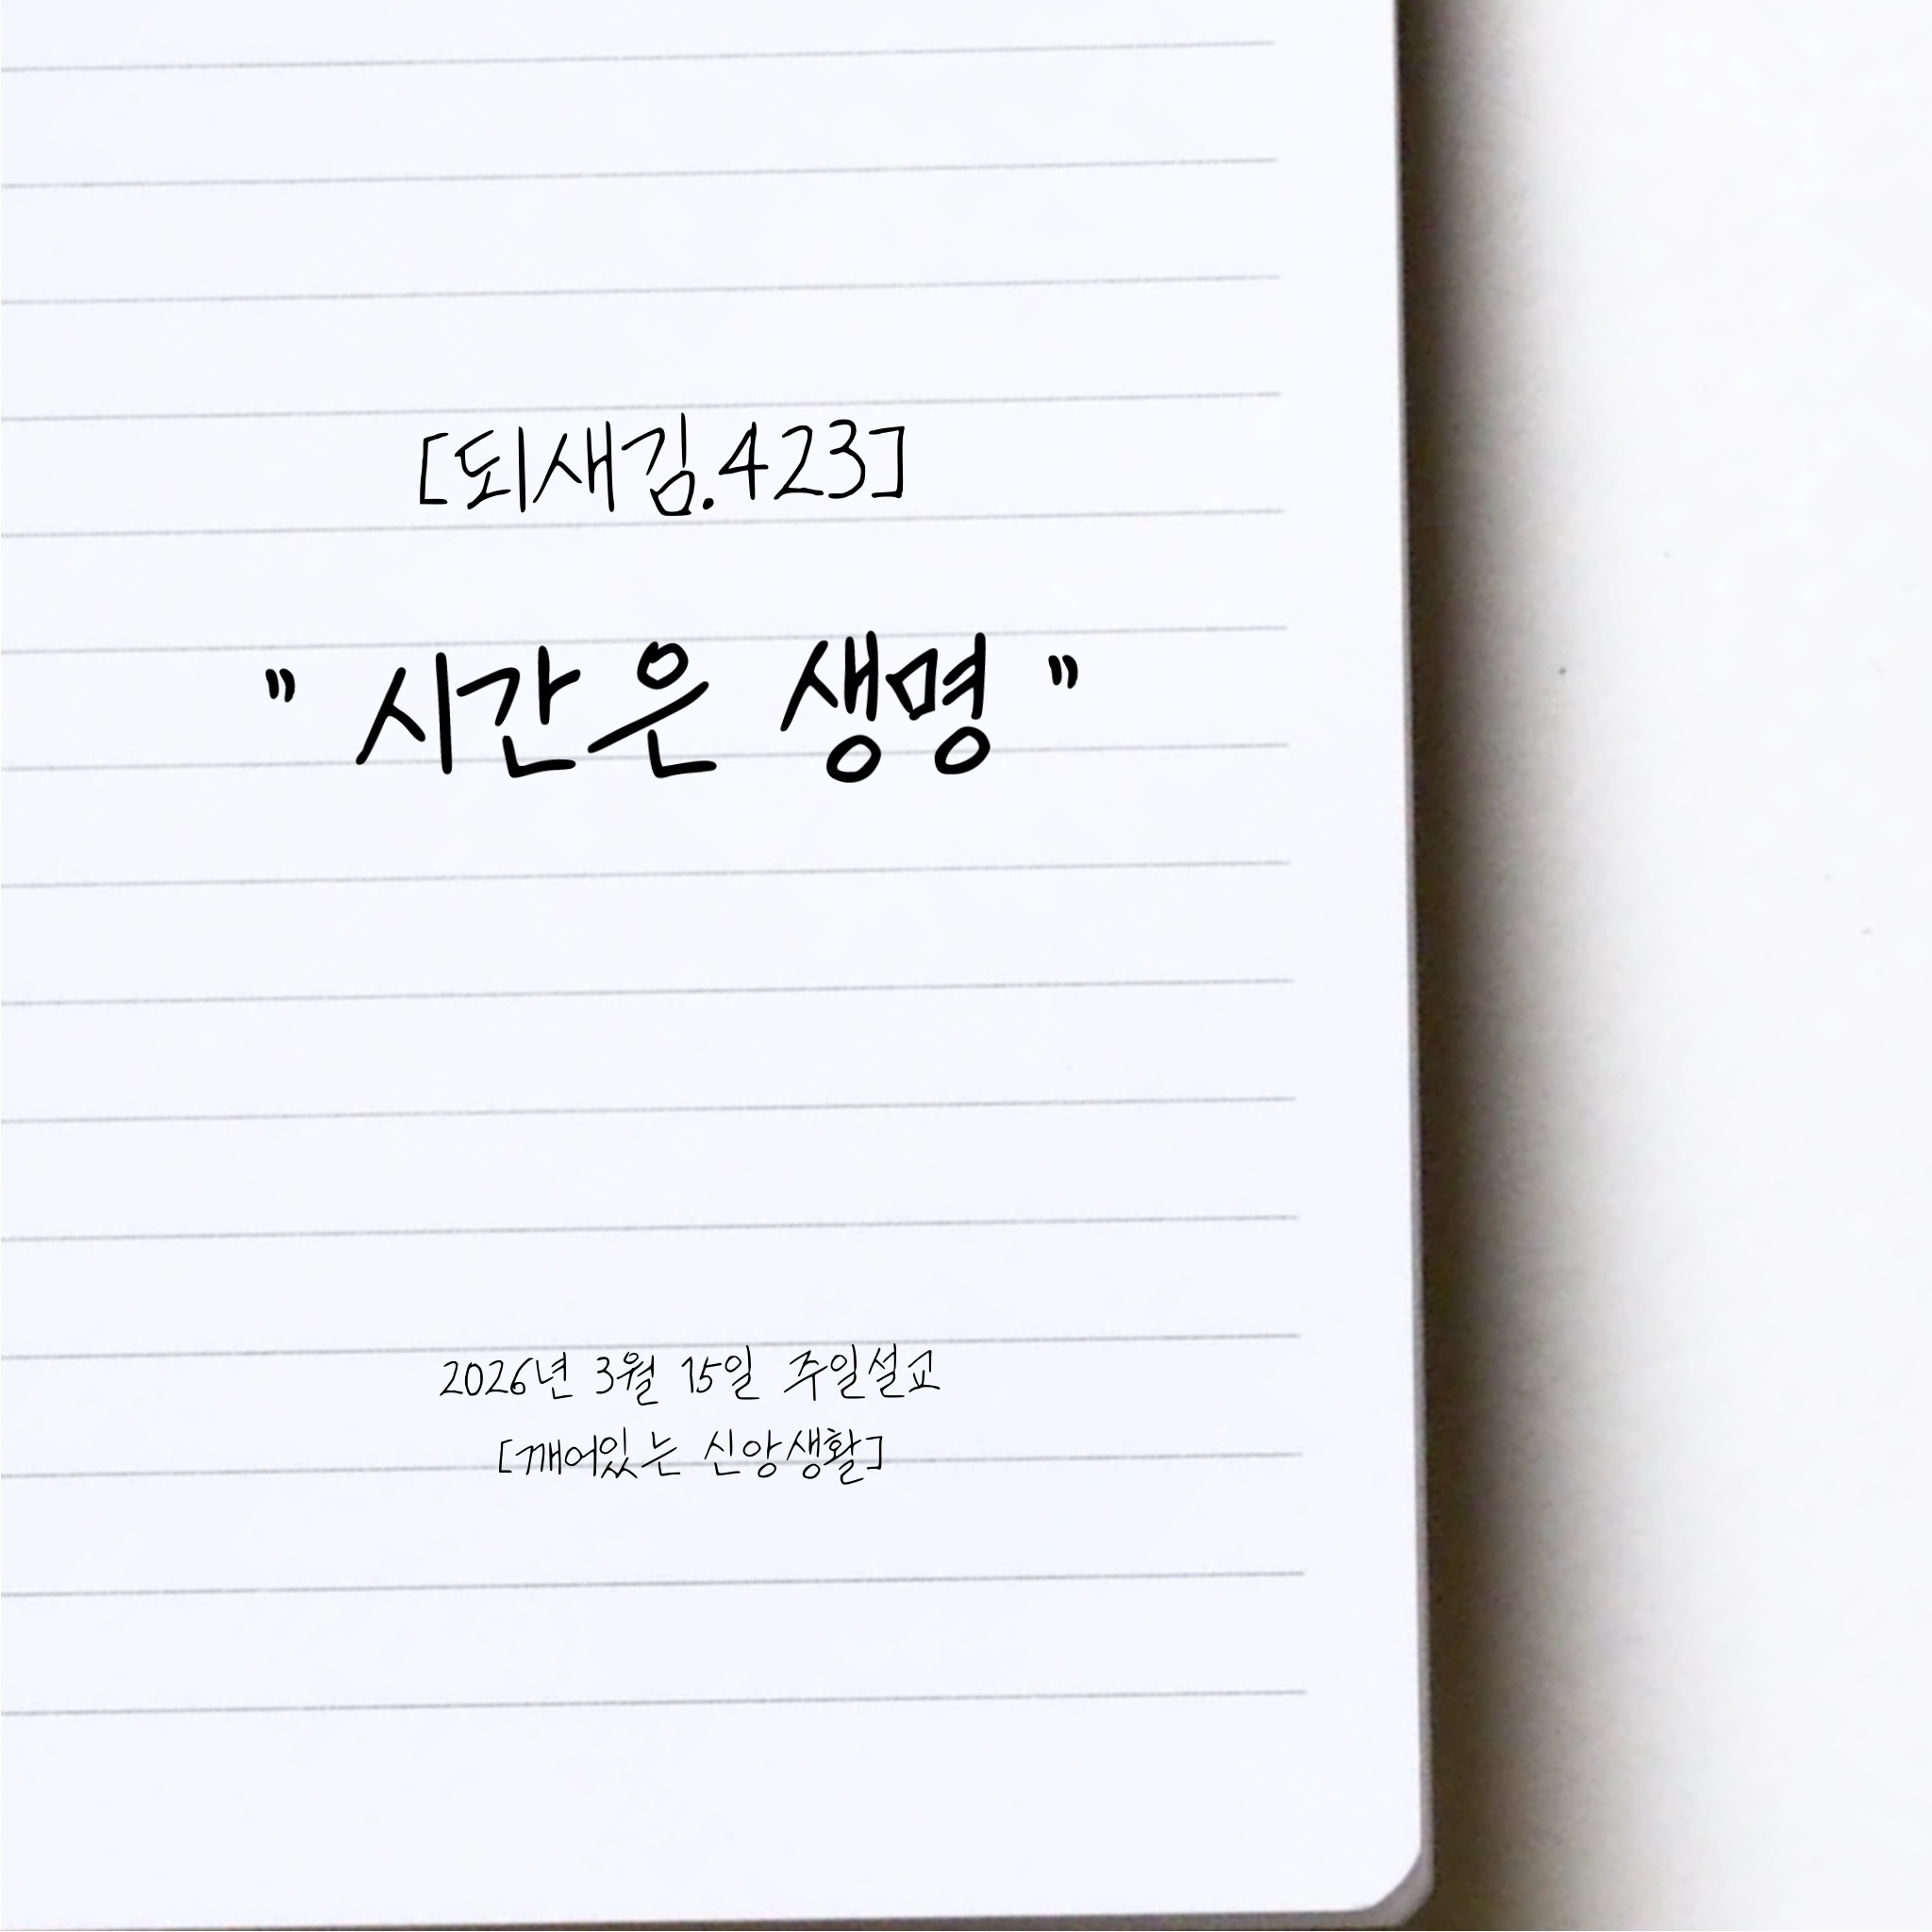 [되새김.423]
" 시간은 생명 "
2026년 3월 15일 주일설교
[깨어있는 신앙생활]